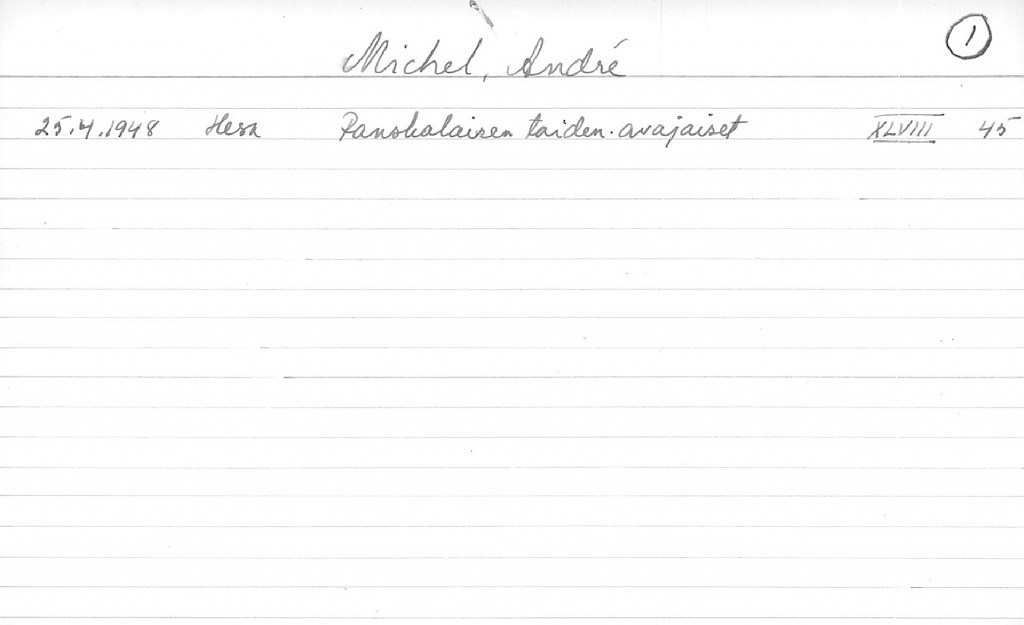 Michel, André 1
25.4.1948 Hesa Ranskalaisen taiden. avajaiset XLVIII 45